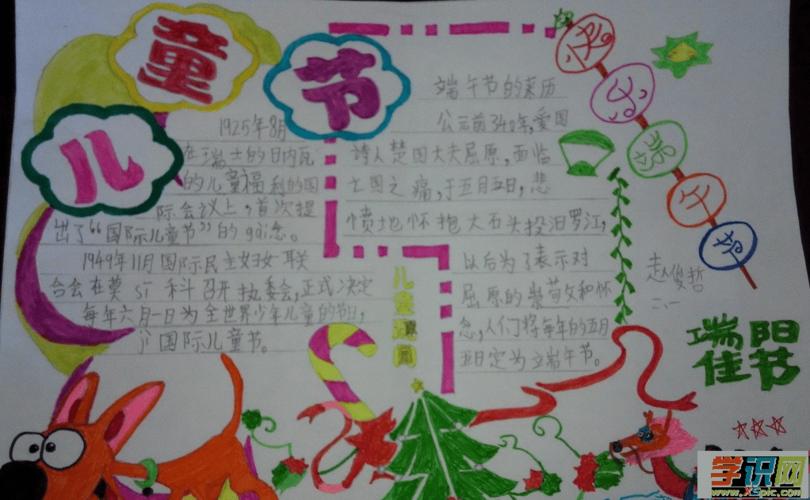 儿童节
1925年8月
在瑞士的日内瓦
的儿童福利的国
际会议上，首次提
出了“国际儿童节”的gài念。
1949年11月国际民主妇女联
合会在莫sī科召开执委会，正式决定
每年六月一日为全世界少年儿童的节日，
国际儿童节。
儿童
快乐端午节
端午节的来历
公元前340年，爱国
诗人楚国大夫屈原，面临
亡国之痛，于五月五日，悲
愤地怀抱大石头投汨罗江，
以后为了表示对
屈原的崇敬和怀
念，人们将每年的五月
五日定为端午节。
赵俊哲
二、一
端阳
佳节
学识网
www.xspic.com